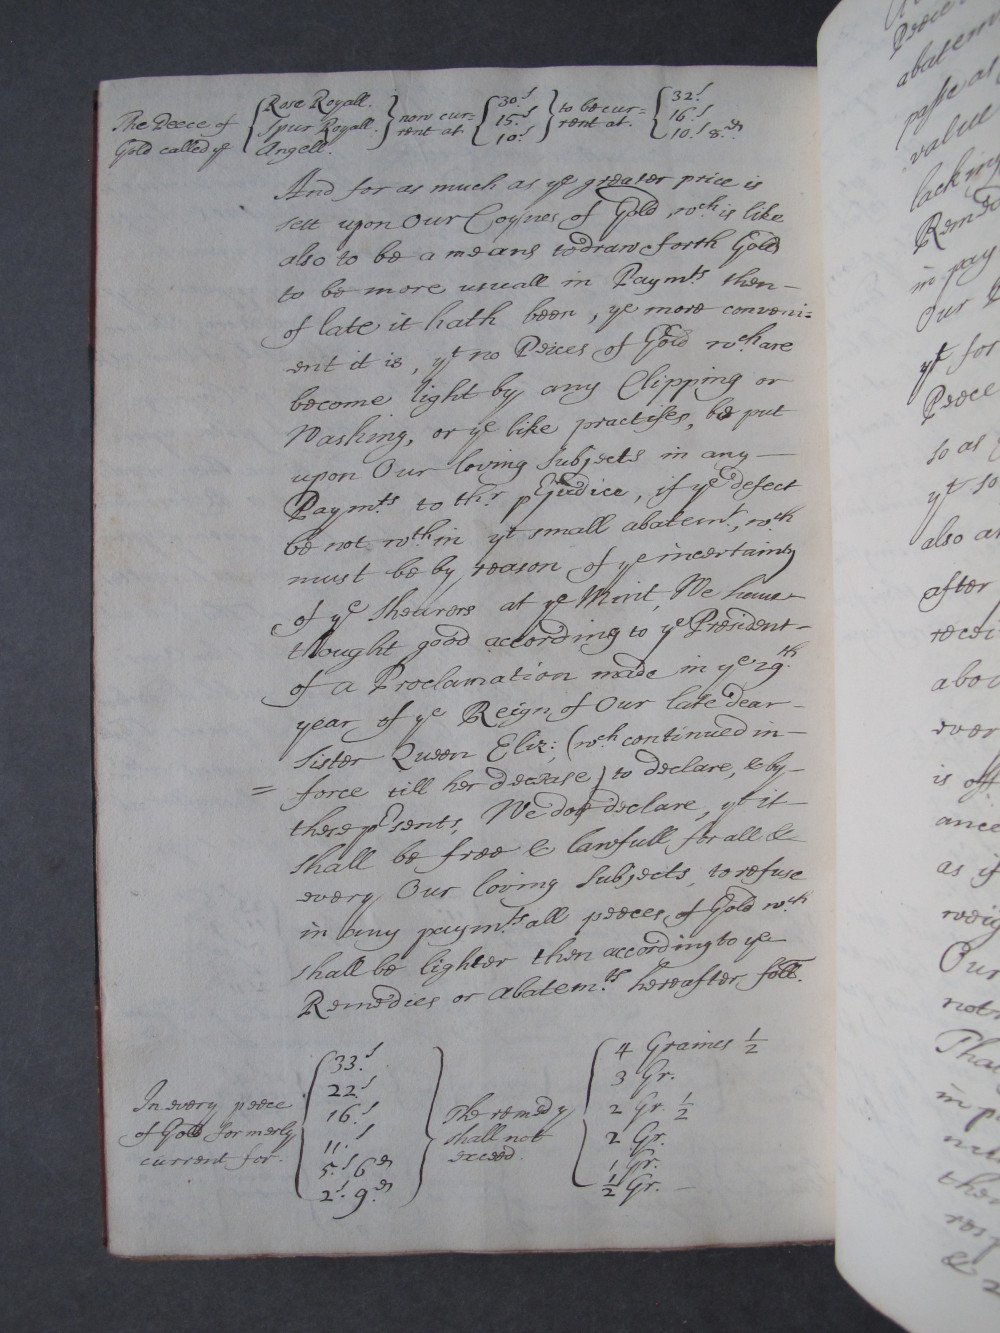 The Peece of Gold called yᵉ { Rose Royall. Spur Royall. Angell. } now cur=rent at { 30.ˢ 15.ˢ 10.ˢ } to be cur=rent at. { 32.ˢ 16.ˢ 10.ˢ 8.ᵈ
And for as much as yᵉ greater price is
sett upon Our Coynes of Gold, wᶜʰ is like
also to be a means to draw forth Gold
to be more usuall in Paymᵗˢ then—
of late it hath been, yᵉ more conveni=
ent it is, yᵗ no Peices of Gold wᶜʰ are
become light by any Clipping or
Washing, or yᵉ like practises, be put
upon Our loving Subjects in any—
Paymᵗˢ to thʳ pʳjudice, if yᵉ defect
be not wᵗʰin yᵗ small abatemᵗ, wᶜʰ
must be by reason of yᵉ incertainty
of yᵉ Shearers at yᵉ Mint, We have—
thought good according to yᵉ President—
of a Proclamation made in yᵉ 29.ᵗʰ
year of yᵉ Reign of Our late dear—
Sister Queen Eliz: (wᶜʰ continued in—
= force till her decease) to declare, & by—
these pʳsents, We doe declare, yᵗ it—
shall be free & lawfull for all &
every Our loving Subjects, to refuse
in any paymᵗˢ all peeces of Gold wᶜʰ
shall be lighter then according to yᵉ
Remedies or Abatem.ᵗˢ hereafter foll.
In every peece of Gold formerly current for. { 33.ˢ 22.ˢ 16.ˢ 11.ˢ 5.ˢ 6ᵈ 2.ˢ 9.ᵈ } The remedy shall not exceed. { 4 Graines ½ 3 Gr. 2 Gr. ½ 2 Gr. 1 Gr. ½ Gr. —
abatem
passe as
value
lacking
in pay
Our
yᵗ for
Peece
so as
yᵗ so
also
after
recei
abov
ever
is off
ance
as if
weig
Our
not
Tha
in p
then
resp